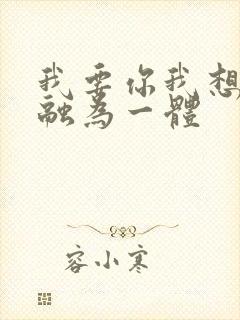 我要你我想
融為一體
容小寒